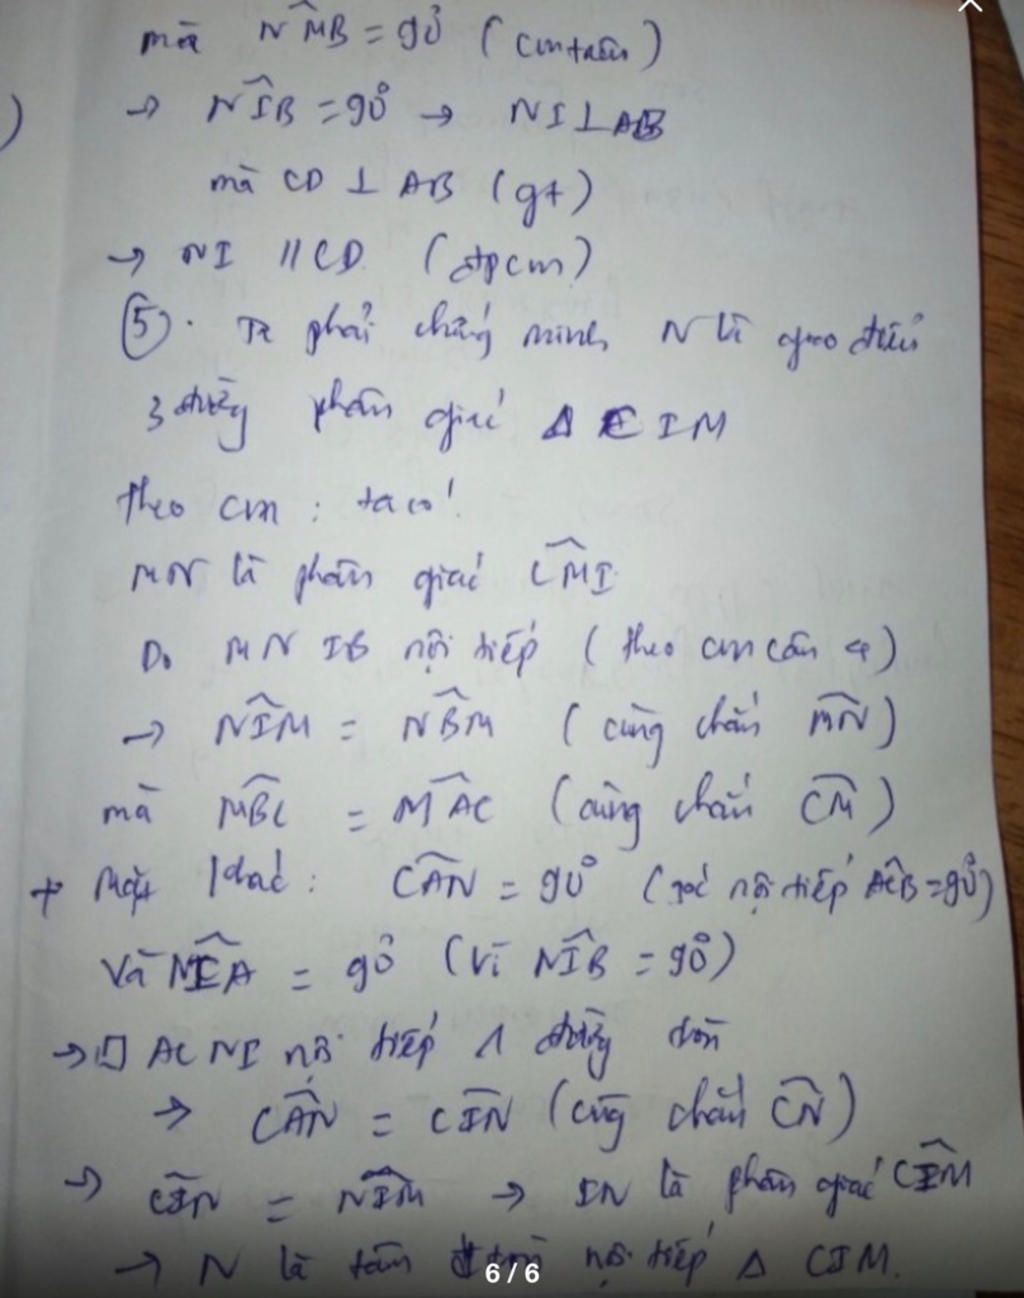 mà NMB = 90° (cm trên)
→ NIB = 90° → NI ⊥ AB
)
mà CD ⊥ AB (gt)
→ NI // CD (đpcm)
⑤. Ta phải chứng minh N là giao điểm
3 đường phân giác Δ CIM
theo cm : ta có!
MN là phân giác CMI
Do MNIB nội tiếp (theo cm câu 4)
→ NIM = NBM (cùng chắn MN)
mà MBC = MAC (cùng chắn CM)
+ Mặt khác: CAN = 90° (góc nội tiếp ACB = 90°)
Và NIA = 90° (vì NIB = 90°)
→ □ ACNI nội tiếp 1 đường tròn
→ CAN = CIN (cùng chắn CN)
→ CIN = NIM → IN là phân giác CIM
→ N là tâm nội tiếp Δ CIM.
6 / 6